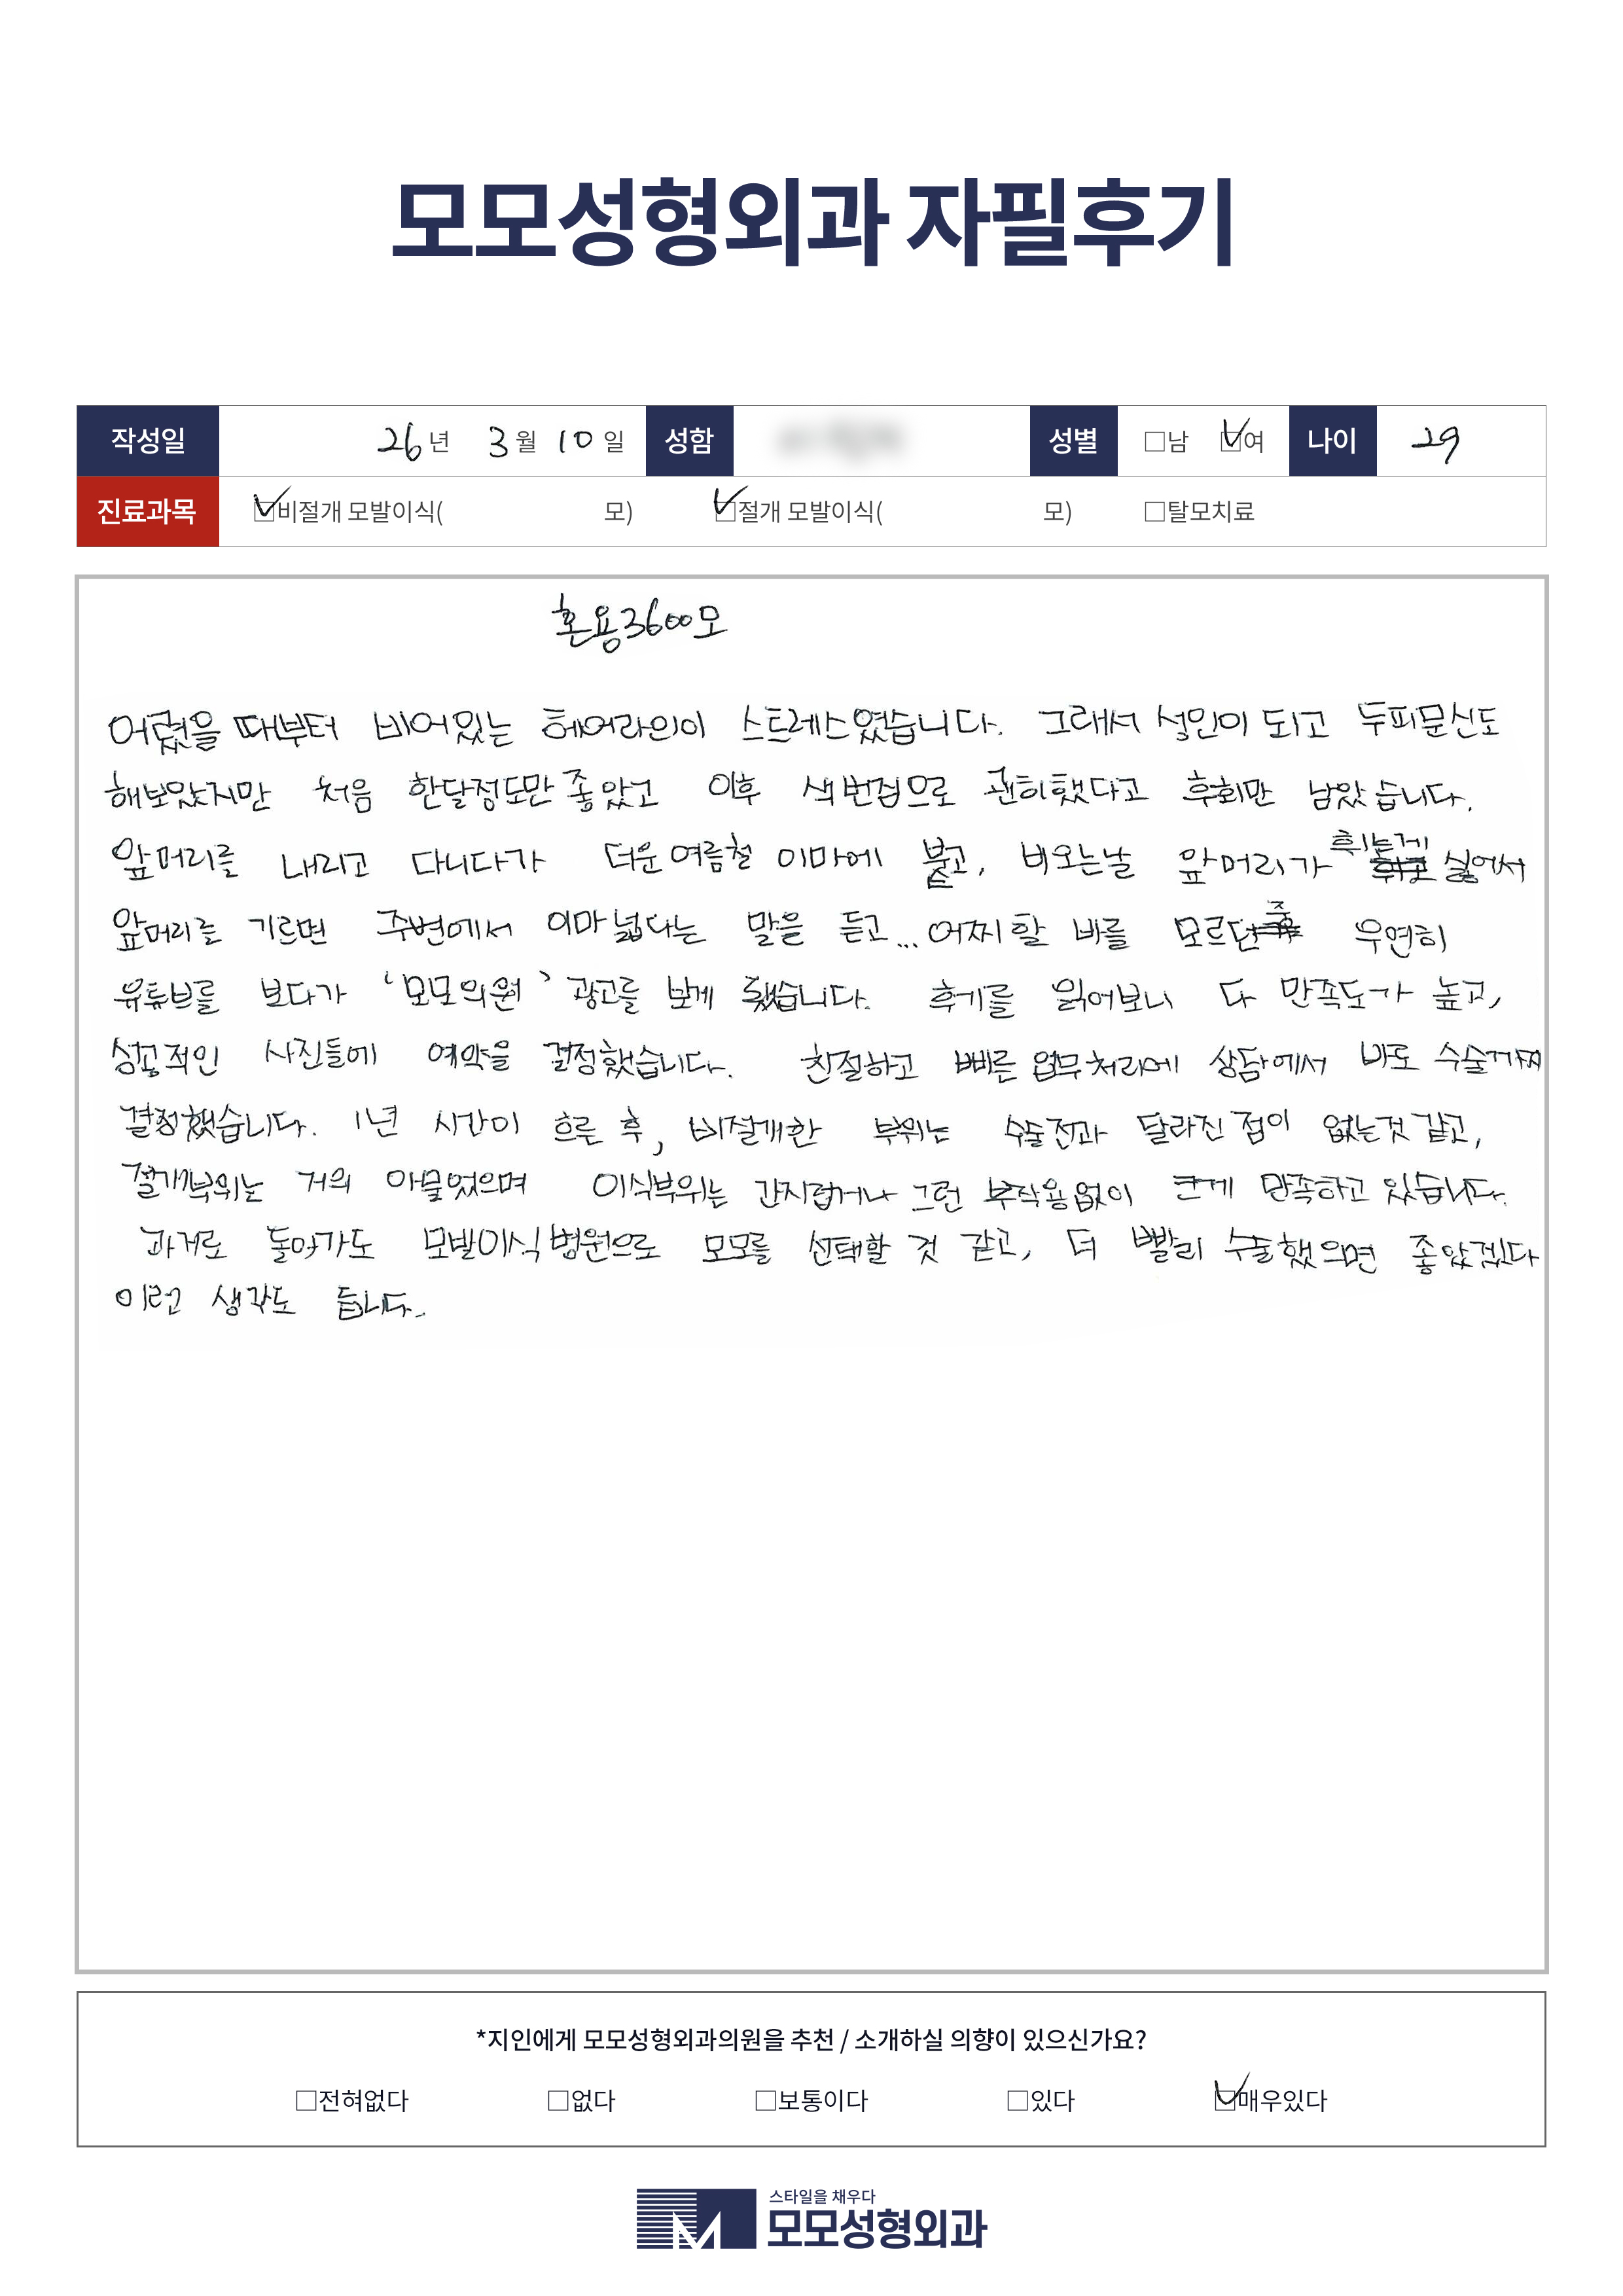 모모성형외과 자필후기
작성일 26년 3월 10일 성함 성별 □남 ☑여 나이 29
진료과목 ☑비절개 모발이식( 모) ☑절개 모발이식( 모) □탈모치료
혼용3600모
어렸을 때부터 비어있는 헤어라인이 스트레스였습니다. 그래서 성인이 되고 두피문신도
해보았지만 처음 한달정도만 좋았고 이후 색번짐으로 괜히했다고 후회만 남았습니다.
앞머리를 내리고 다니다가 더운 여름철 이마에 붙고, 비오는날 앞머리가 휘는게 싫어서
앞머리를 기르면 주변에서 이마 넓다는 말을 듣고... 어찌 할 바를 모르던 중 우연히
유튜브를 보다가 '모모의원' 광고를 보게 됐습니다. 후기를 읽어보니 다 만족도가 높고,
성공적인 사진들에 예약을 결정했습니다. 친절하고 빠른 업무처리에 상담에서 바로 수술까지
결정했습니다. 1년 시간이 흐른 후, 비절개한 부위는 수술전과 달라진 점이 없는것 같고,
절개부위는 거의 아물었으며 이식부위는 간지럽거나 그런 부작용없이 크게 만족하고 있습니다.
과거로 돌아가도 모발이식 병원으로 모모를 선택할 것 같고, 더 빨리 수술했으면 좋았겠다
이런 생각도 듭니다.
*지인에게 모모성형외과의원을 추천 / 소개하실 의향이 있으신가요?
□전혀없다 □없다 □보통이다 □있다 ☑매우있다
스타일을 채우다
모모성형외과